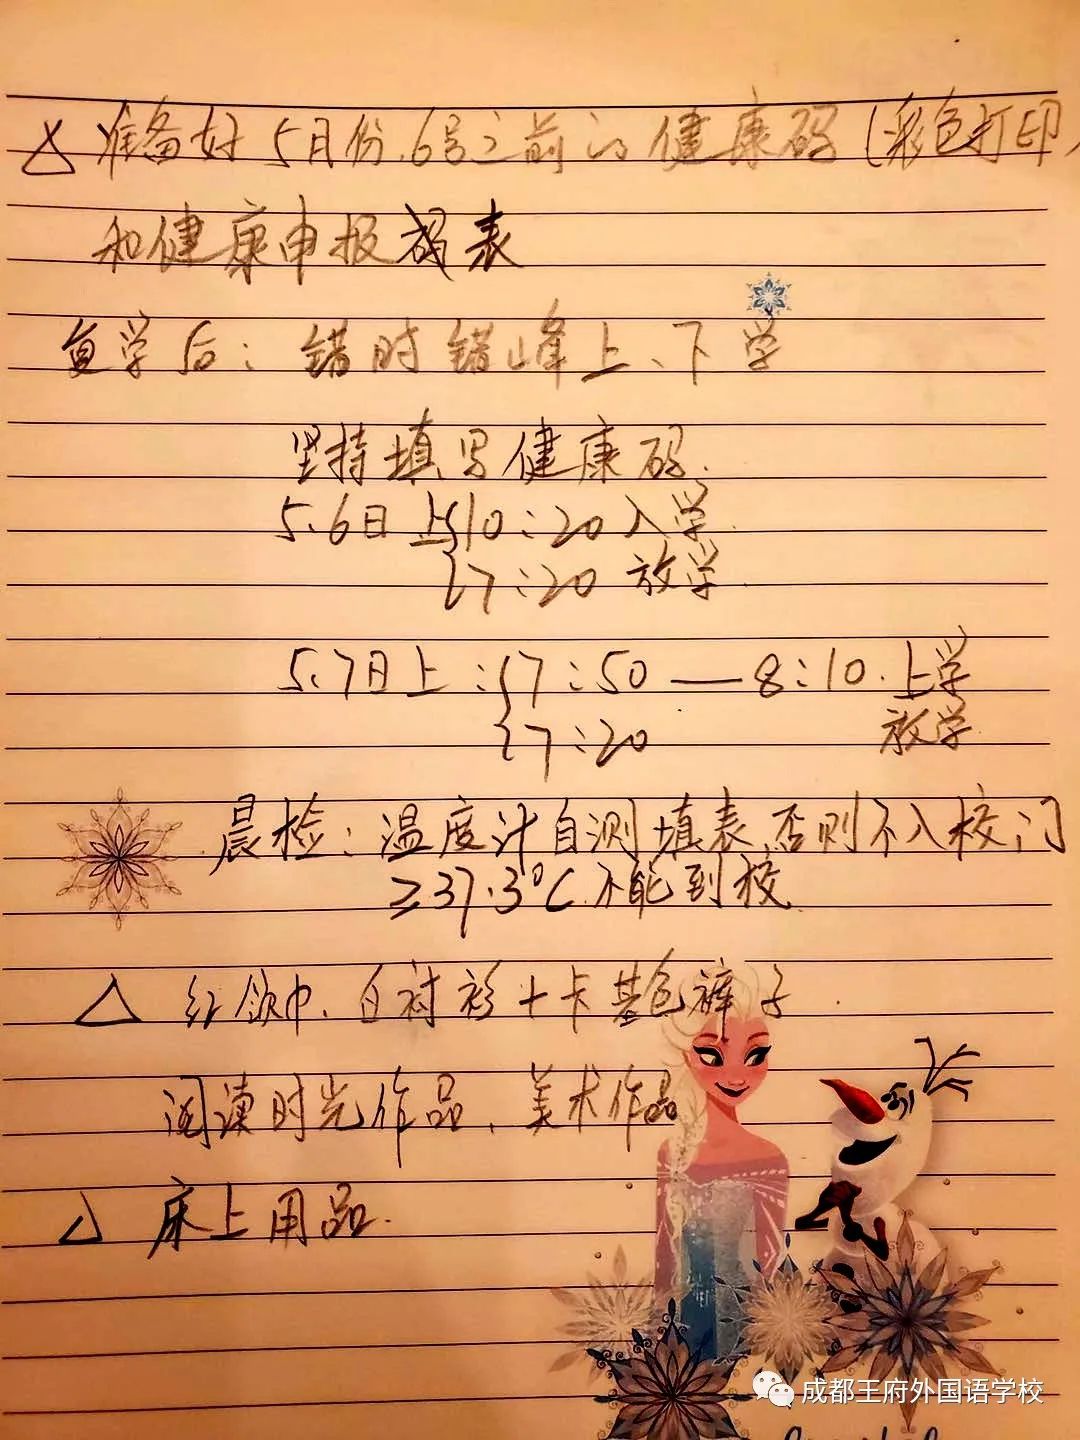 △ 准备好5月份.6号之前的健康码(彩色打印)
和健康申报表
复学后: 错时错峰上、下学
坚持填写健康码.
5.6日上 10:20 入学.
17:20 放学.
5.7日上: 7:50 — 8:10.上学
17:20 放学
晨检: 温度计自测填表,否则不入校门
≥37.3℃.不能到校.
△ 红领巾、白衬衫+卡其色裤子.
阅读时光作品、美术作品
△ 床上用品.
成都王府外国语学校